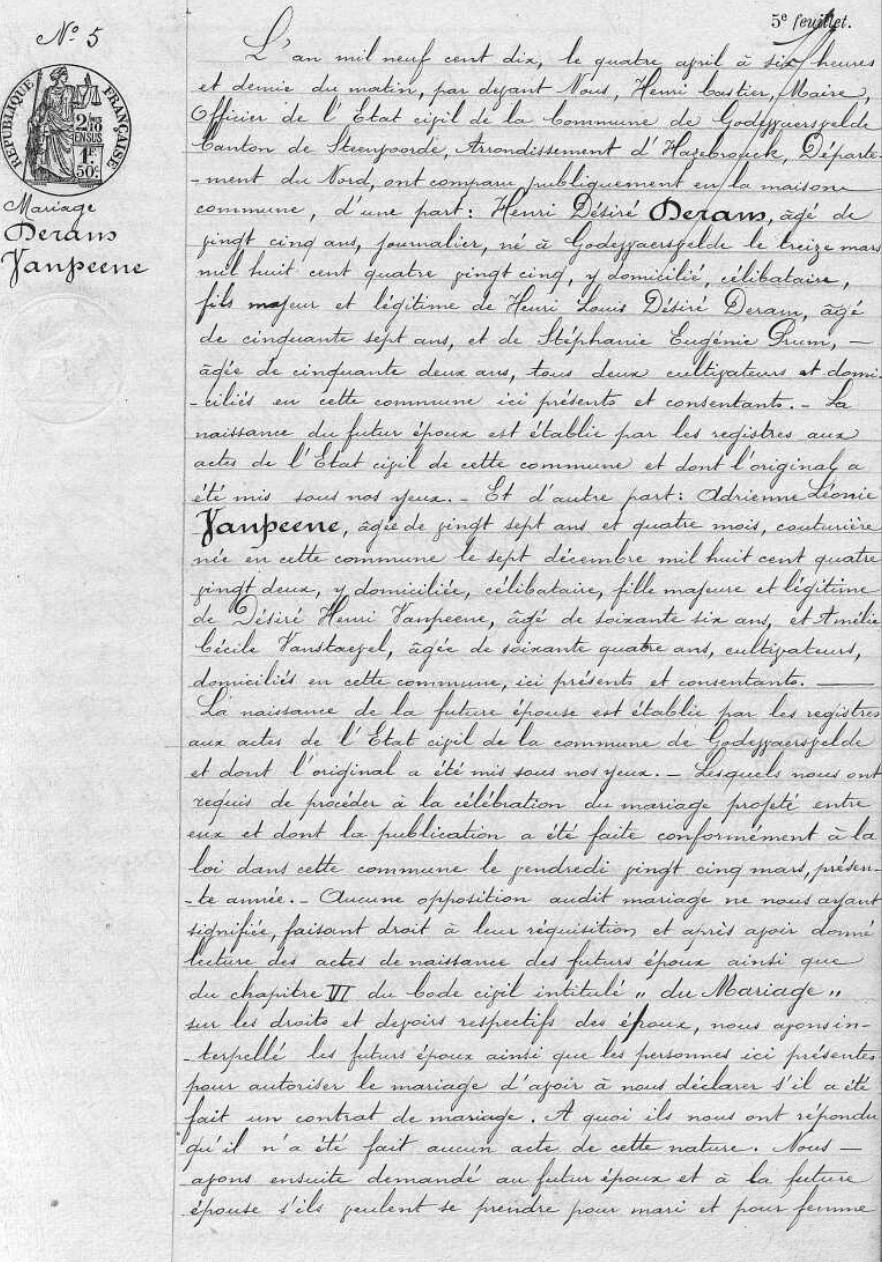 5e feuillet.
N° 5
RÉPUBLIQUE FRANÇAISE
2/10
EN SUS
1F
50c
Mariage
Deram
Vanpeene
L'an mil neuf cent dix, le quatre avril à six heures
et demie du matin, par devant Nous, Henri Castier, Maire,
Officier de l'Etat civil de la Commune de Godewaersvelde
Canton de Steenvoorde, Arrondissement d'Hazebrouck, Départe-
-ment du Nord, ont comparu publiquement en la maison
commune, d'une part : Henri Désiré Deram, âgé de
vingt cinq ans, journalier, né à Godewaersvelde le treize mars
mil huit cent quatre vingt cinq, y domicilié, célibataire,
fils majeur et légitime de Henri Louis Désiré Deram, âgé
de cinquante sept ans, et de Stéphanie Eugénie Prum, —
âgée de cinquante deux ans, tous deux cultivateurs et domi-
-ciliés en cette commune ici présents et consentants. - La
naissance du futur époux est établie par les registres aux
actes de l'Etat civil de cette commune et dont l'original a
été mis sous nos yeux. - Et d'autre part : Adrienne Léonie
Vanpeene, âgée de vingt sept ans et quatre mois, couturière
née en cette commune le sept décembre mil huit cent quatre
vingt deux, y domiciliée, célibataire, fille majeure et légitime
de Désiré Henri Vanpeene, âgé de soixante six ans, et Amélie
Cécile Vanstaevel, âgée de soixante quatre ans, cultivateurs,
domiciliés en cette commune, ici présents et consentants. —
La naissance de la future épouse est établie par les registres
aux actes de l'Etat civil de la commune de Godewaersvelde
et dont l'original a été mis sous nos yeux. - Lesquels nous ont
requis de procéder à la célébration du mariage projeté entre
eux et dont la publication a été faite conformément à la
loi dans cette commune le vendredi vingt cinq mars, présen-
-te année. - Aucune opposition audit mariage ne nous ayant
signifiée, faisant droit à leur réquisition et après avoir donné
lecture des actes de naissance des futurs époux ainsi que
du chapitre VI du Code civil intitulé „ du Mariage „
sur les droits et devoirs respectifs des époux, nous avons in-
-terpellé les futurs époux ainsi que les personnes ici présentes
pour autoriser le mariage d'avoir à nous déclarer s'il a été
fait un contrat de mariage. A quoi ils nous ont répondu
qu'il n'a été fait aucun acte de cette nature. Nous —
avons ensuite demandé au futur époux et à la future
épouse s'ils veulent se prendre pour mari et pour femme